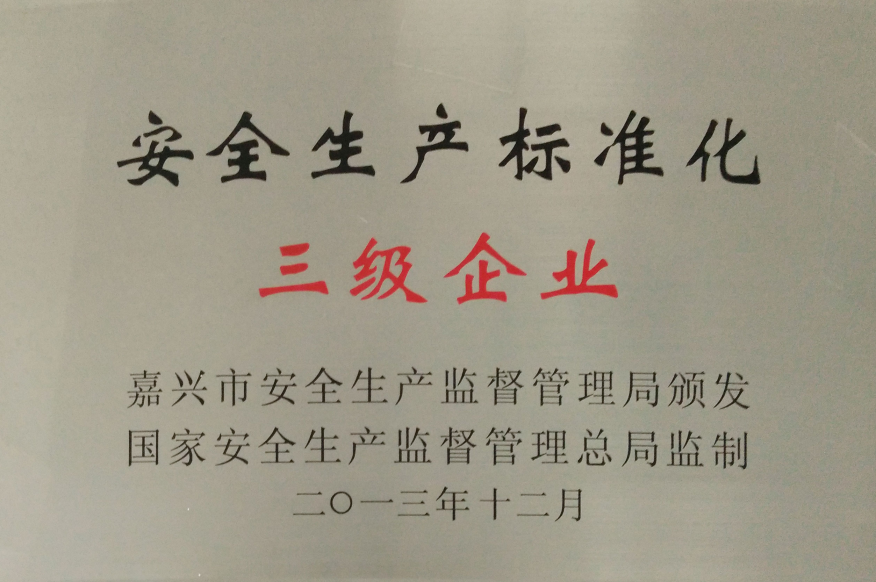 安全生产标准化
三级企业
嘉兴市安全生产监督管理局颁发
国家安全生产监督管理总局监制
二〇一三年十二月